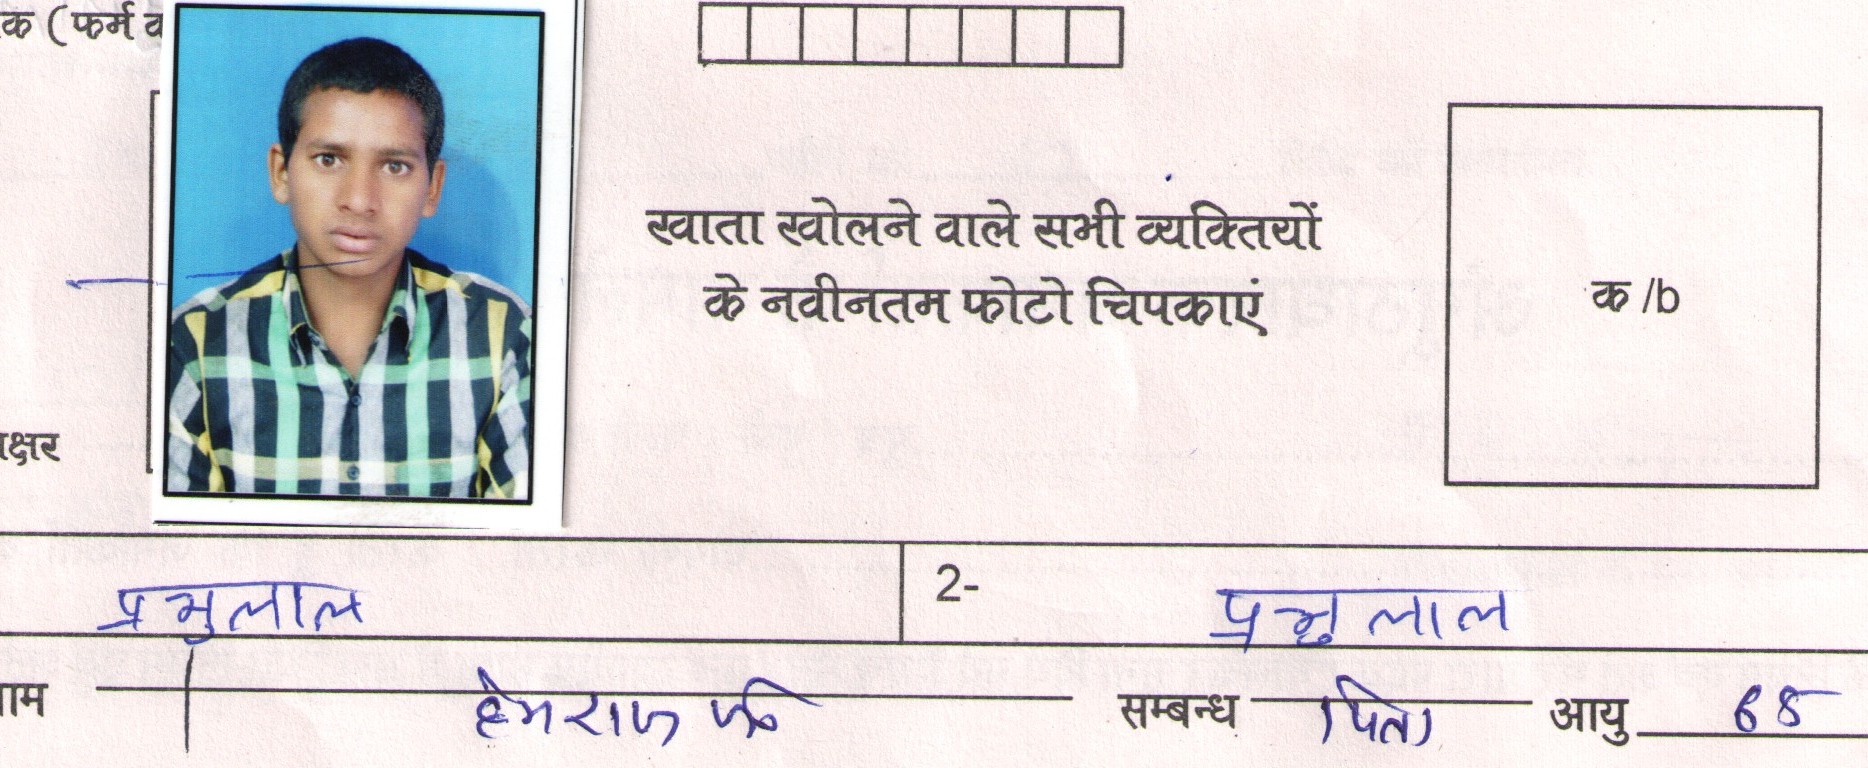 क (फर्म
खाता खोलने वाले सभी व्यक्तियों
के नवीनतम फोटो चिपकाएं
क /b
क्षर
प्रभुलाल 2- प्रभुलाल
नाम हेमराज सम्बन्ध पिता आयु 68